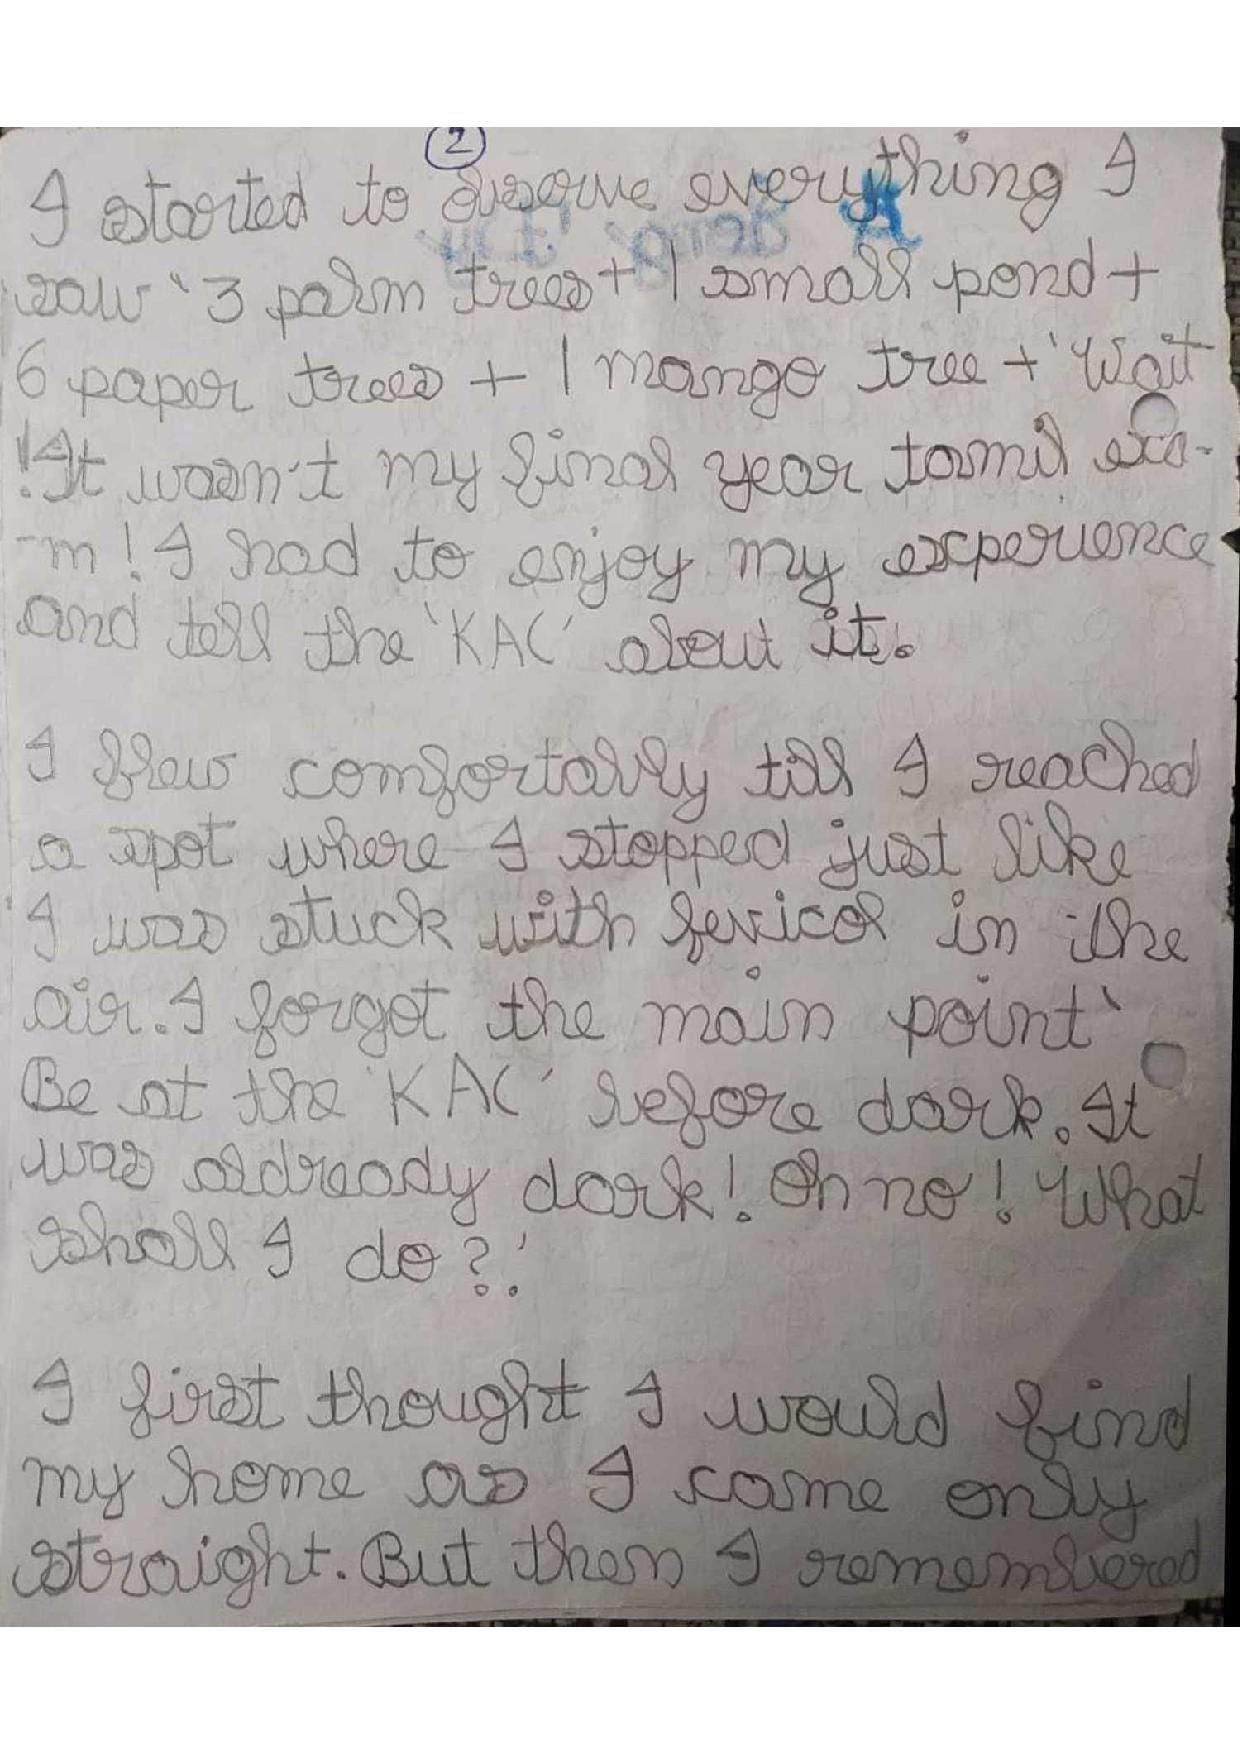 2
I started to observe everything I
saw '3 palm trees + 1 small pond +
6 paper trees + 1 mango tree + 'Wait
! It wasn't my final year tamil exa-
-m! I had to enjoy my experience
and tell the 'KAC' about it.
I flew comfortably till I reached
a spot where I stopped just like
I was stuck with fevicol in the
air. I forgot the main point '
Be at the 'KAC' before dark. It
was aldready dark! Oh no! What
shall I do?.'
I first thought I would find
my home as I came only
straight. But then I remembered